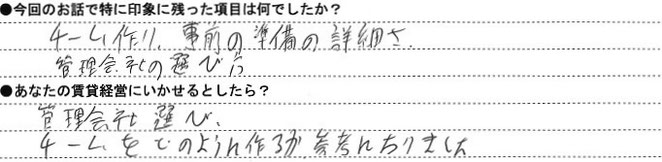 ●今回のお話で特に印象に残った項目は何でしたか？
チーム作り、事前の準備の詳細さ、
管理会社の選び方
●あなたの賃貸経営にいかせるとしたら？
管理会社選び、
チームをどのように作るか、参考になりました